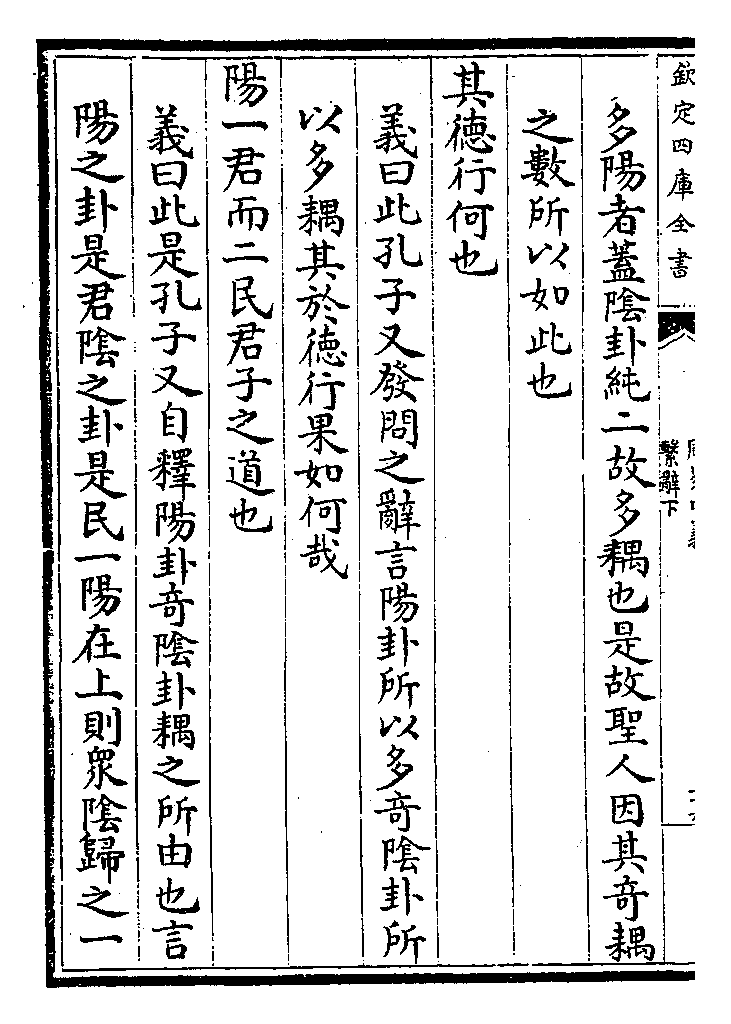 欽定四庫全書
繫辭下
多陽者蓋陰卦純二故多耦也是故聖人因其奇耦
之數所以如此也
其德行何也
義曰此孔子又發問之辭言陽卦所以多奇陰卦所
以多耦其於德行果如何哉
陽一君而二民君子之道也
義曰此是孔子又自釋陽卦奇陰卦耦之所由也言
陽之卦是君陰之卦是民一陽在上則衆陰歸之一